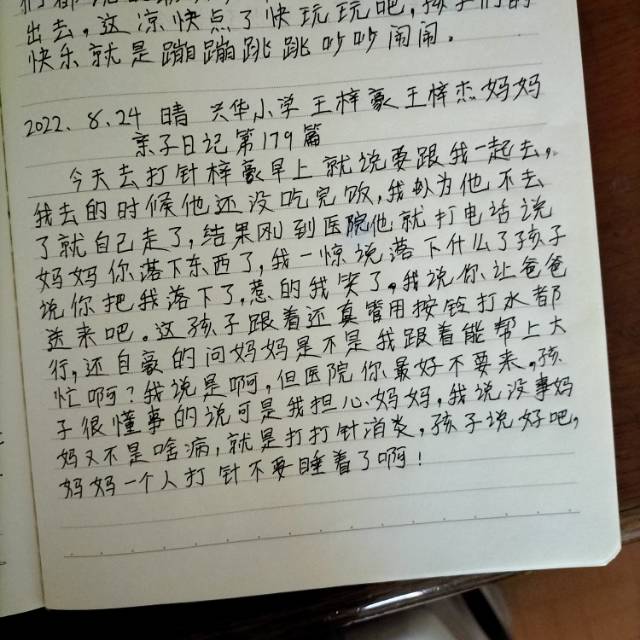 出去,这凉快点了快玩玩吧,孩子们的
快乐就是蹦蹦跳跳吵吵闹闹。
2022、8、24 晴 兴华小学 王梓豪王梓杰妈妈
亲子日记第179篇
今天去打针梓豪早上就说要跟我一起去,
我去的时候他还没吃完饭,我认为他不去
了就自己走了,结果刚到医院他就打电话说
妈妈你落下东西了,我一惊说落下什么了孩子
说你把我落下了,惹的我笑了。我说你让爸爸
送来吧。这孩子跟着还真管用按铃打水都
行,还自豪的问妈妈是不是我跟着能帮上大
忙啊?我说是啊,但医院你最好不要来,孩
子很懂事的说可是我担心妈妈,我说没事妈
妈又不是啥病,就是打打针消炎,孩子说好吧,
妈妈一个人打针不要睡着了啊!